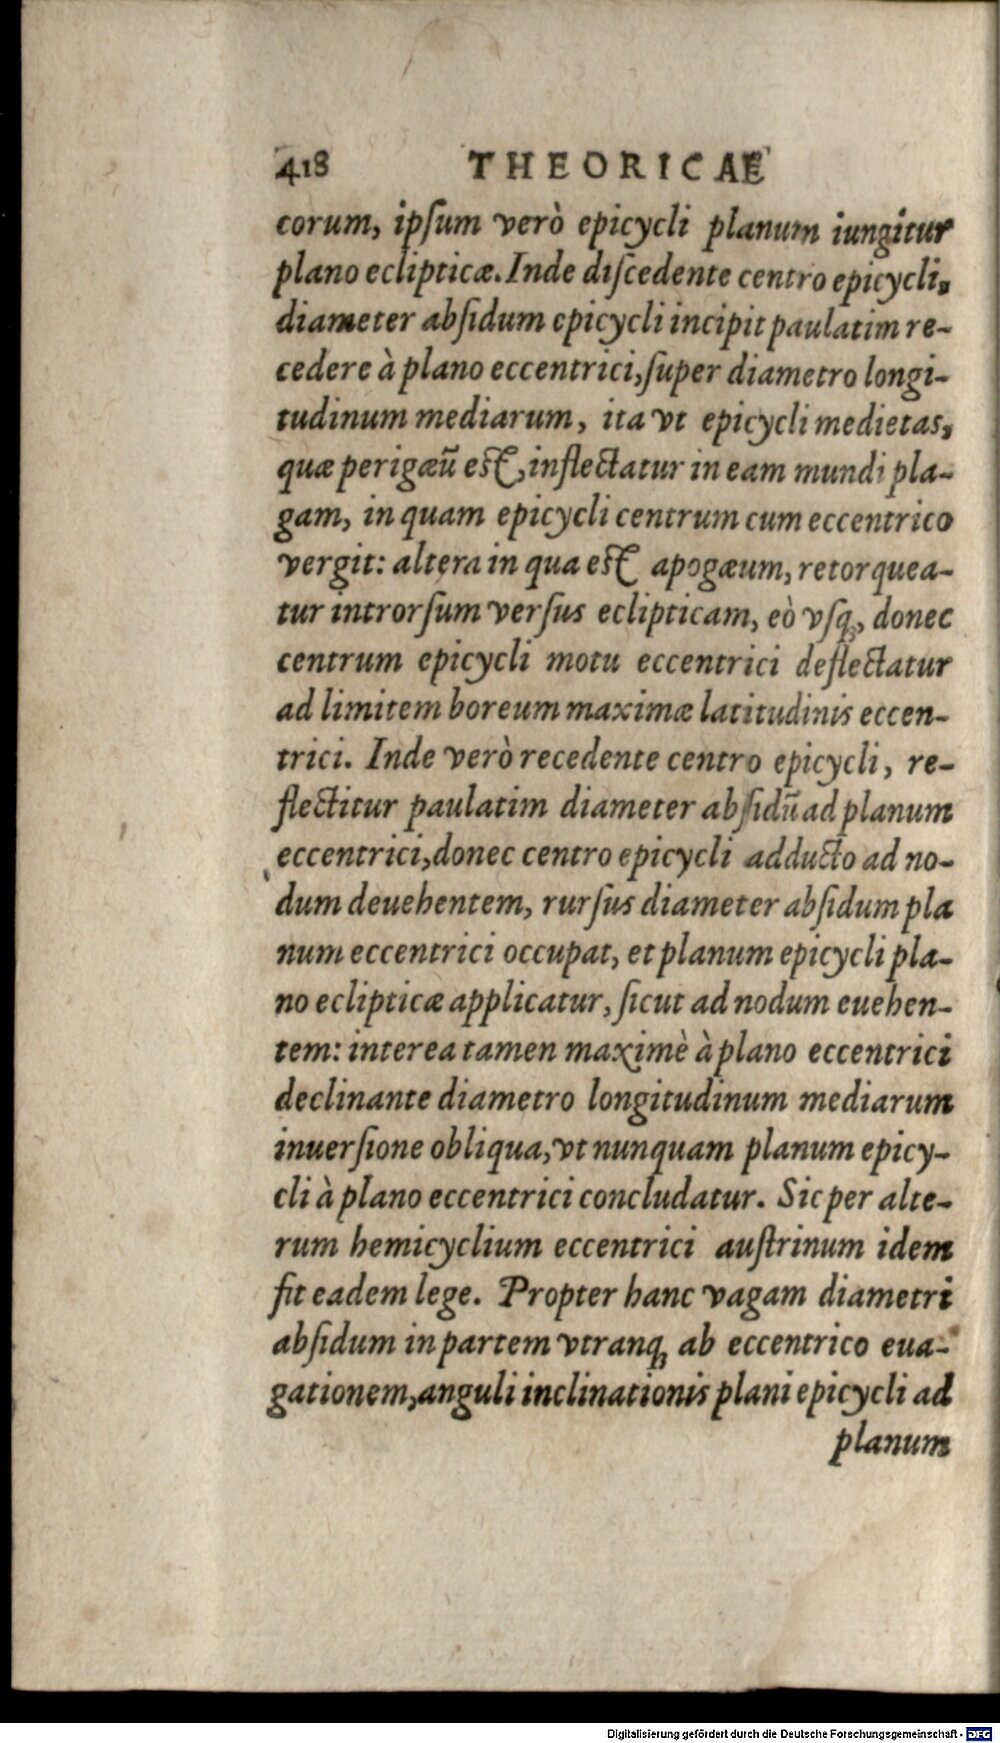 418 THEORICAE
corum, ipſum verò epicycli planum iungitur
plano eclipticæ. Inde diſcedente centro epicycli,
diameter abſidum epicycli incipit paulatim re-
cedere à plano eccentrici, ſuper diametro longi-
tudinum mediarum, ita vt epicycli medietas,
quæ perigæū eſt, inflectatur in eam mundi pla-
gam, in quam epicycli centrum cum eccentrico
vergit: altera in qua eſt apogæum, retorquea-
tur introrſum verſus eclipticam, eò vſq;, donec
centrum epicycli motu eccentrici deflectatur
ad limitem boreum maximæ latitudinis eccen-
trici. Inde verò recedente centro epicycli, re-
flectitur paulatim diameter abſidū ad planum
eccentrici, donec centro epicycli adducto ad no-
dum deuehentem, rurſus diameter abſidum pla
num eccentrici occupat, et planum epicycli pla-
no eclipticæ applicatur, ſicut ad nodum euehen-
tem: interea tamen maximè à plano eccentrici
declinante diametro longitudinum mediarum
inuerſione obliqua, vt nunquam planum epicy-
cli à plano eccentrici concludatur. Sic per alte-
rum hemicyclium eccentrici auſtrinum idem
fit eadem lege. Propter hanc vagam diametri
abſidum in partem vtranq; ab eccentrico eua-
gationem, anguli inclinationis plani epicycli ad
planum
Digitalisierung gefördert durch die Deutsche Forschungsgemeinschaft - DFG